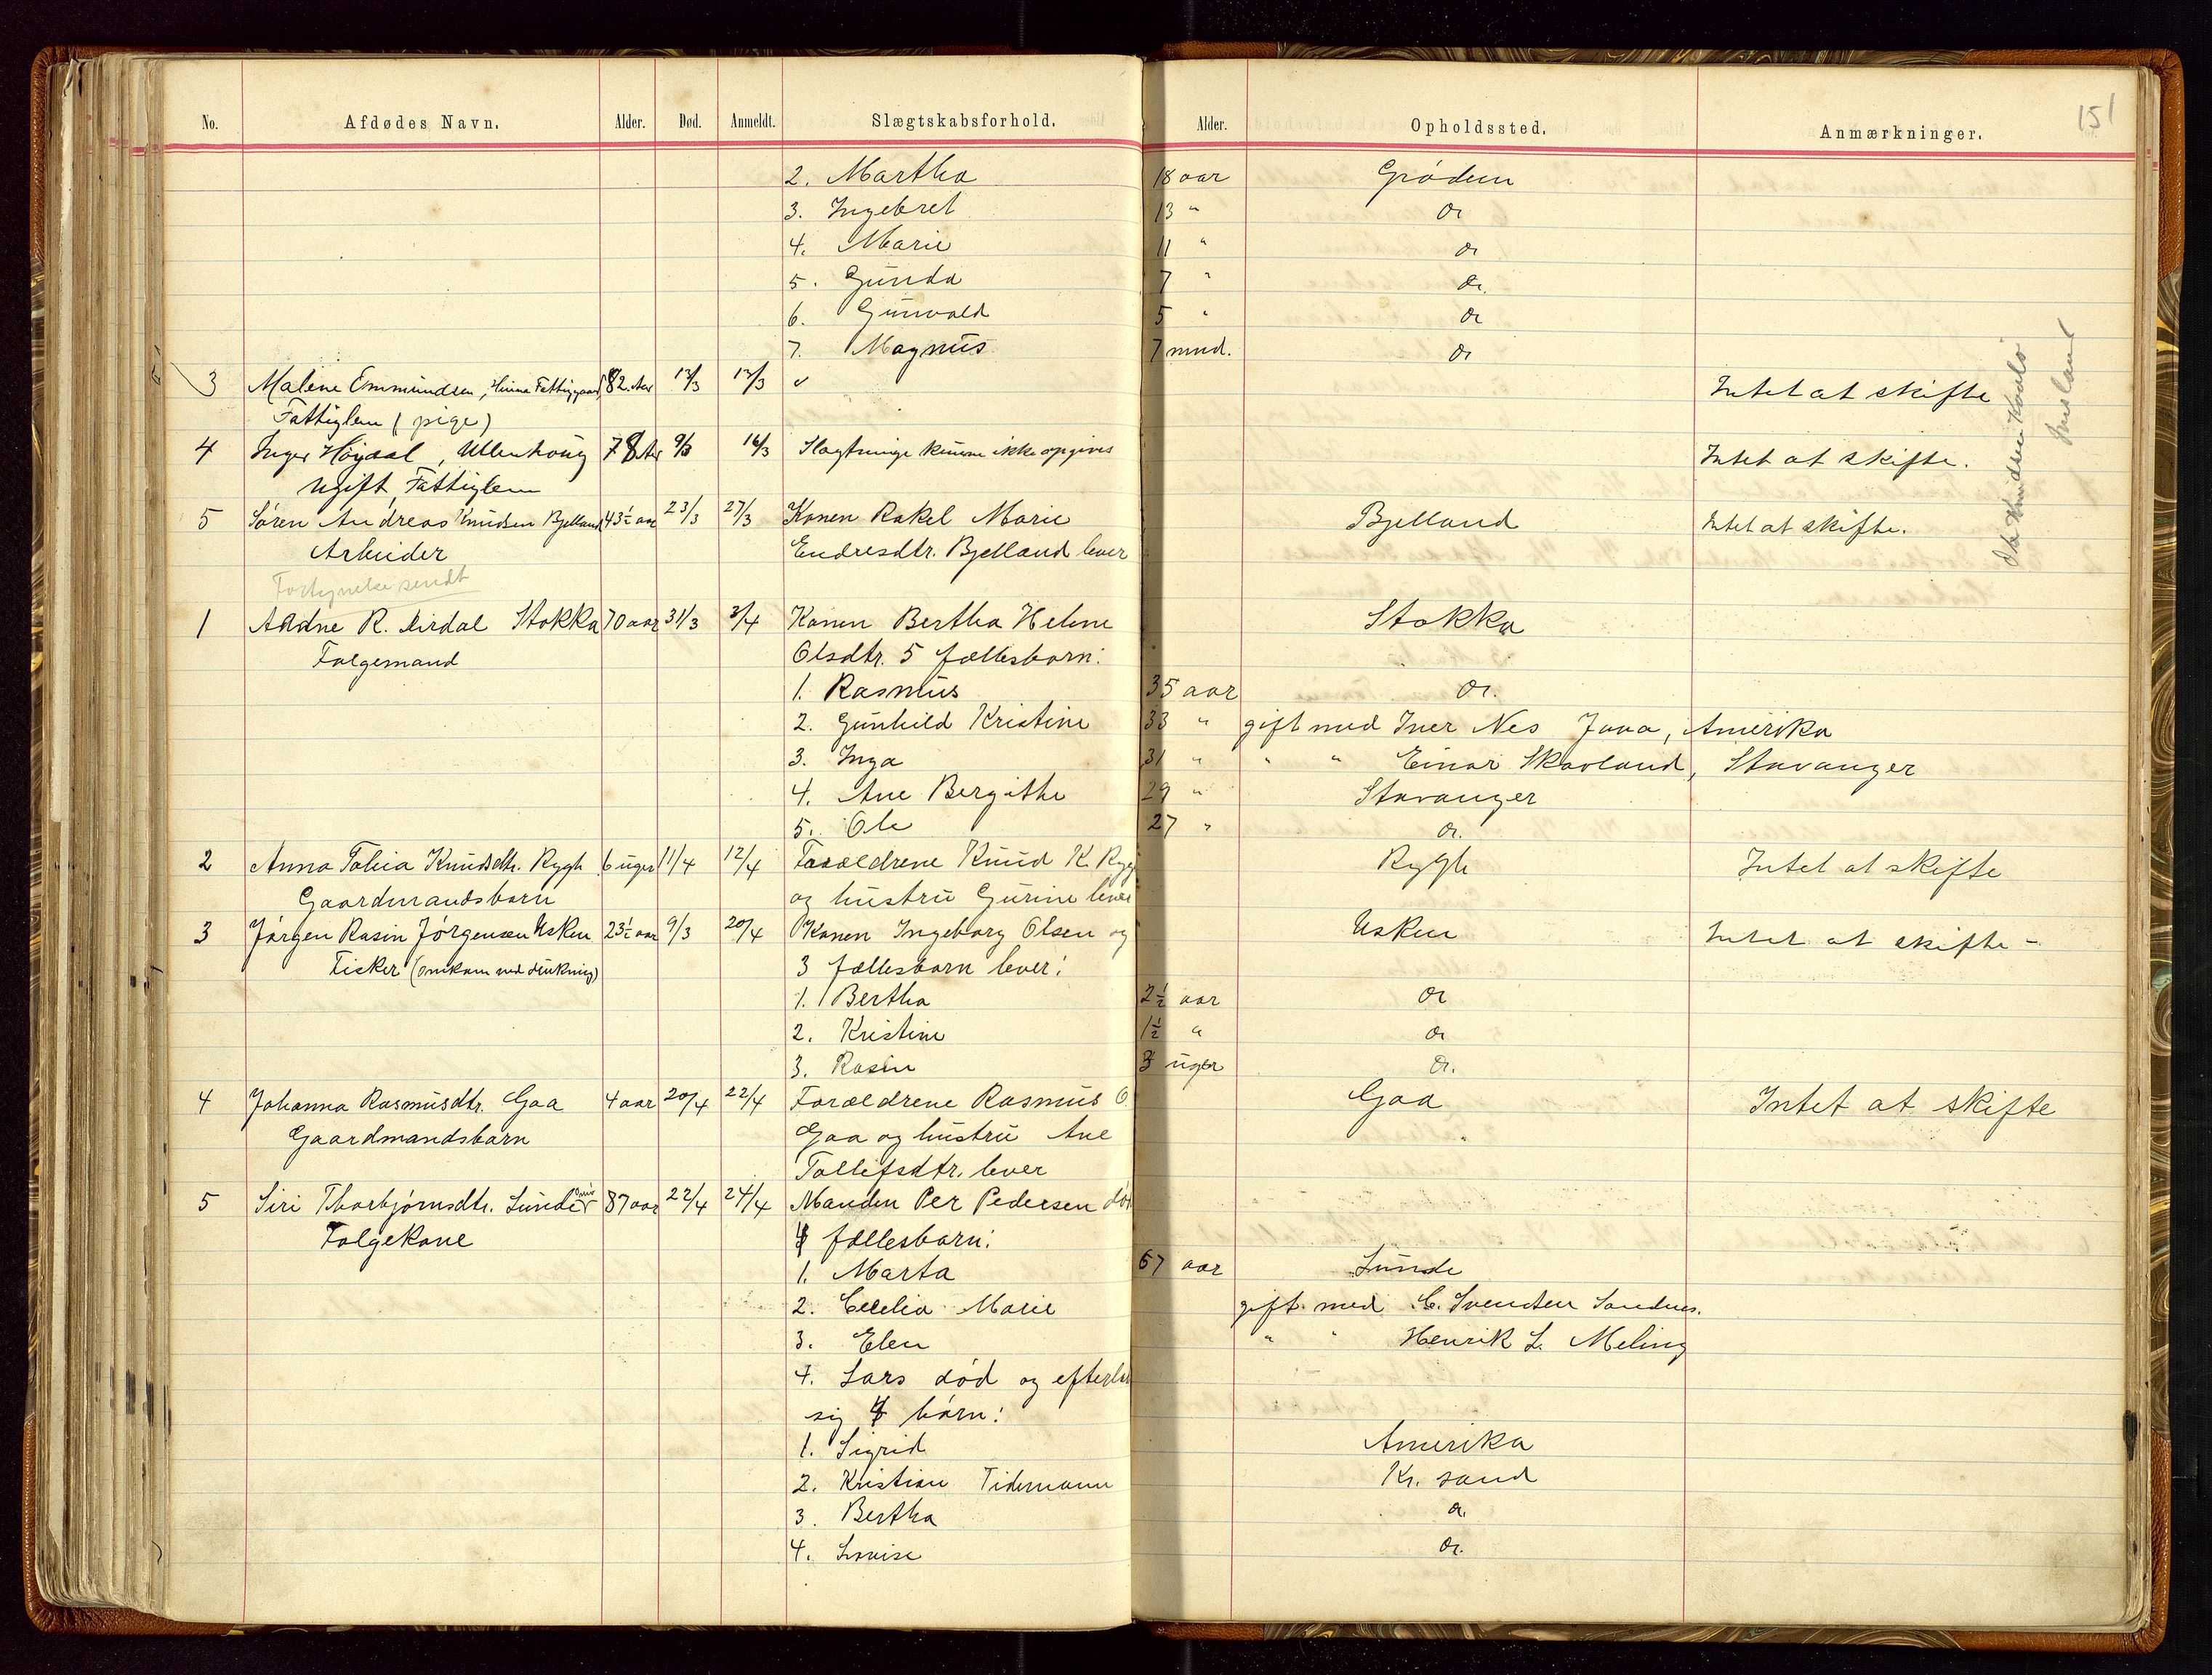 No. Afdødes Navn. Alder. Død. Anmeldt. Slægtskabsforhold. Alder. Opholdssted. Anmærkninger. 151
2. Martha 18 aar Grødem
3. Ingebret 13 " do
4. Marie 11 " do
5. Gunda 7 " do.
6. Gunvald 5 " do
7. Magnus 7 mnd. do
3 Malene Emmundsen, Hinna Fattiggaard 82 Aar 12/3 13/3 Intet at skifte
Fattiglem (pige)
4 Inger Høydal, Ullenhoug 78 Aar 9/3 16/3 Slægtninge kunne ikke opgives Intet at skifte.
Ugift, Fattiglem
5 Søren Andreas Knudsen Bjelland 43½ aar 23/3 27/3 Konen Rakel Marie Bjelland Intet at skifte.
Arbeider Endresdtr. Bjelland lever
sendt
1 Aadne R. Airdal Stokka 70 aar 31/3 3/4 Konen Bertha Helene Stokka
Folgemand Olsdtr. 5 fællesbørn:
1. Rasmus 35 aar do.
2. Gunhild Kristine 33 " gift med Iver Nes Java, Amerika
3. Inga 31 " " " Einar Skavland, Stavanger
4. Ane Bergithe 29 " Stavanger
5. Ole 27 " do.
2 Anna Tobia Knudsdtr. Rygh 6 uger 11/4 12/4 Forældrene Knud K. Rygh Rygh Intet at skifte
Gaardmandsbarn og hustru Gurine lever
3 Jørgen Rasin Jørgensen Usken 23½ aar 9/3 20/4 Konen Ingeborg Olsen og Usken Intet at skifte -
Fisker (omkom ved drukning) 3 fællesbørn lever:
1. Bertha 2½ aar do
2. Kristine 1½ " do
3. Rasin 3 uger do.
4 Johanna Rasmusdtr. Gaa 4 aar 20/4 22/4 Forældrene Rasmus O. Gaa Intet at skifte
Gaardmandsbarn Gaa og hustru Ane
Tollefsdtr. lever
5 Siri Thorbjørnsdtr. Sunde 87 aar 22/4 24/4 Manden Per Pedersen død
Folgekone 4 fællesbørn:
1. Marta 67 aar Sunde
2. Cecelia Marie gift med C. Svendsen Sandnes.
3. Elen " " Henrik L. Meling
4. Lars død og efterlod
sig 4 børn:
1. Sigrid Amerika
2. Kristian Tidemann Kr. sand
3. Bertha do.
4. Lovise do.